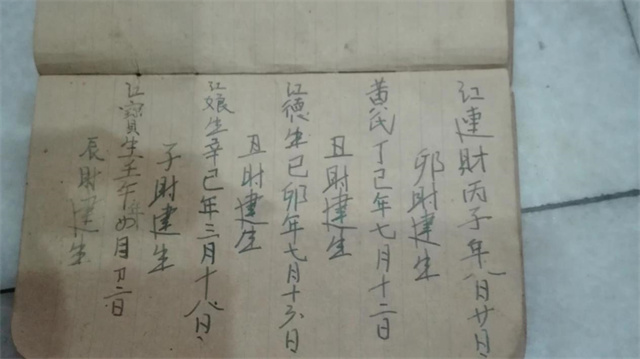 江連財丙子年八月廿日
卯財建生
黄氏丁己年七月十二日
丑財建生
江德生己卯年七月十六日
丑財建生
江娘生辛己年三月十八日
子財建生
江寶生壬午年 月廿二日
辰財建生